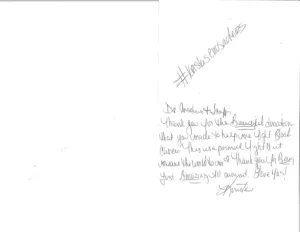 Thank you for the Beautiful donation
that you made to help me fight Blood
Cancer. This is a personal fight & it
means the world to me! Thank you for Being
just Amazing all around. Love Ya's!